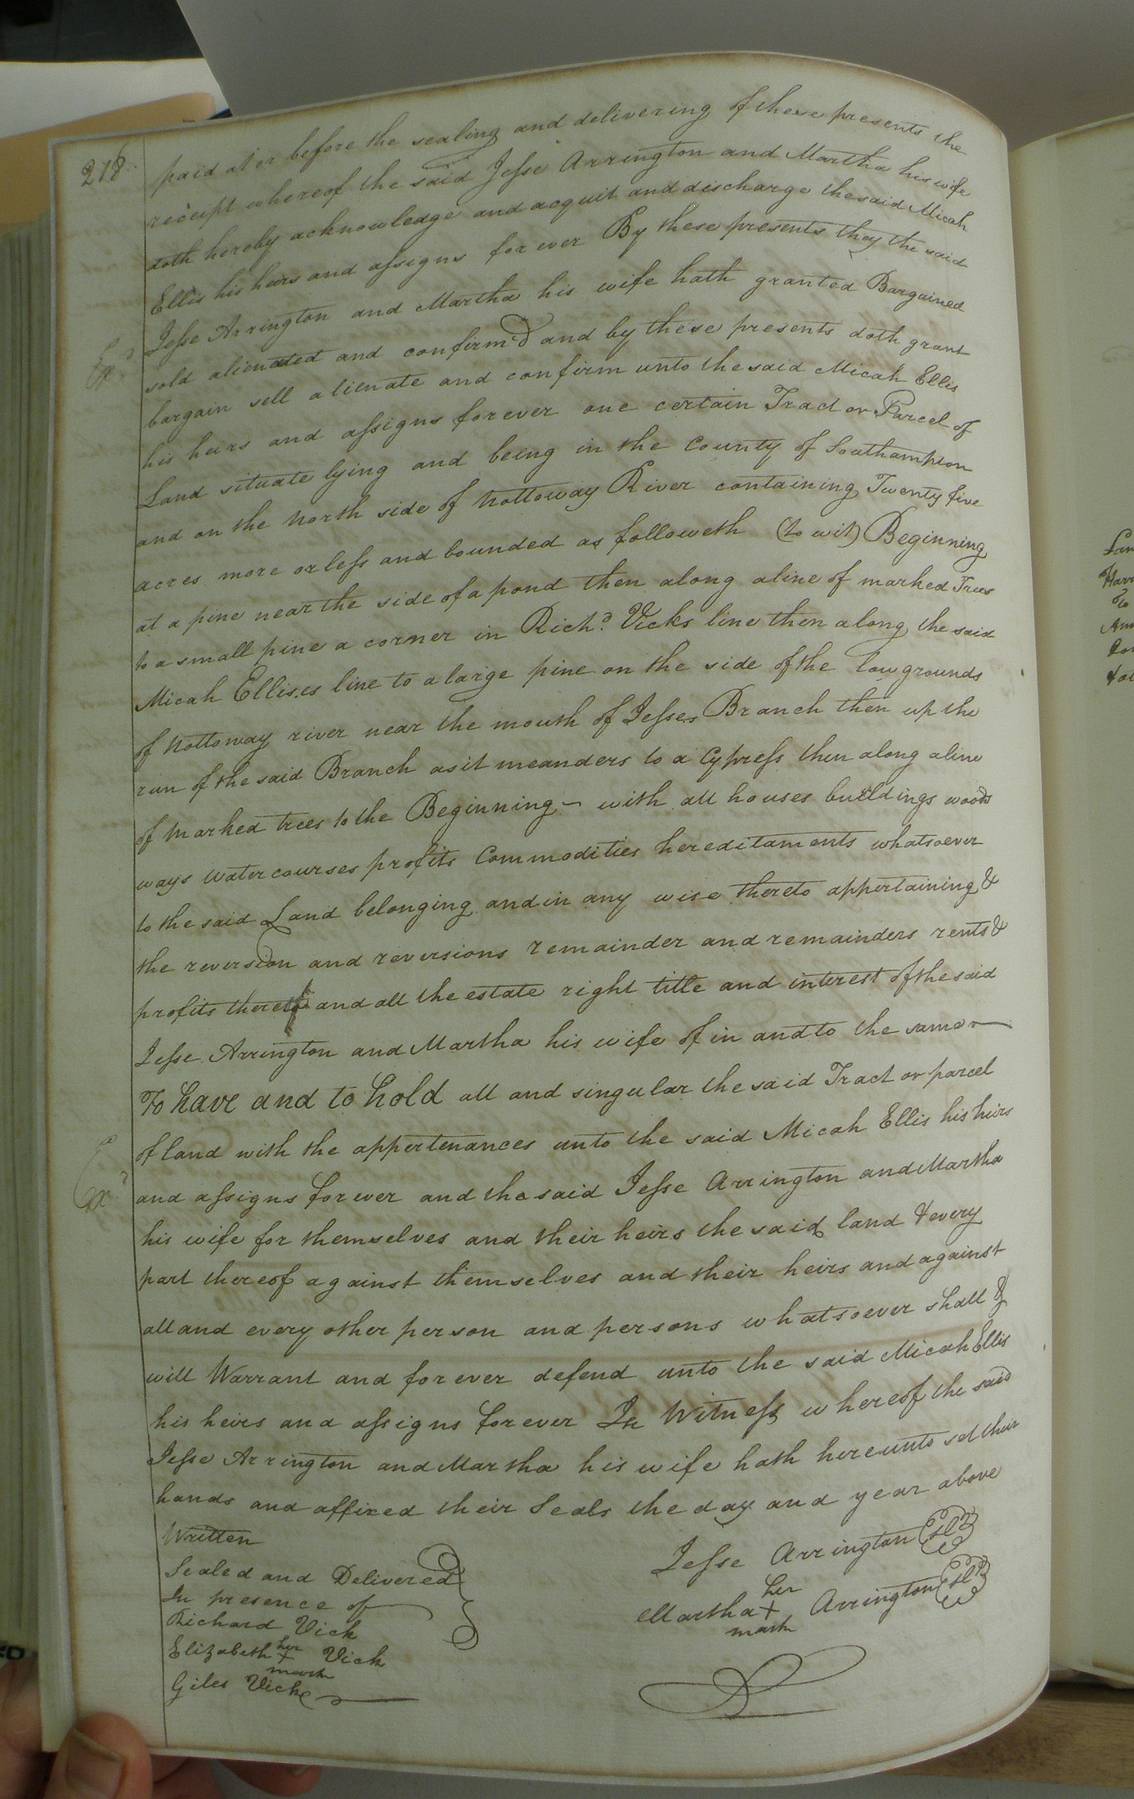 218.
paid at or before the sealing and delivering of these presents the
receipt whereof the said Jesse Arrington and Martha his wife
doth hereby acknowledge and acquit and discharge the said Micah
Ellis his heirs and assigns for ever By these presents they the said
Jesse Arrington and Martha his wife hath granted Bargained
sold alienated and confirm'd and by these presents doth grant
bargain sell alienate and confirm unto the said Micah Ellis
his heirs and assigns forever one certain Tract or Parcel of
Land situate lying and being in the County of Southampton
and on the North side of Nottoway River containing Twenty five
acres more or less and bounded as followeth (to wit) Beginning
at a pine near the side of a pond then along a line of marked Trees
to a small pine a corner in Richd. Vicks line then along the said
Micah Ellises line to a large pine on the side of the low grounds
of Nottoway river near the mouth of Jesses Branch then up the
run of the said Branch as it meanders to a Cypress then along a line
of marked trees to the Beginning with all houses buildings woods
ways water courses profits Commodities hereditaments whatsoever
to the said Land belonging and in any wise thereto appertaining &
the reversion and reversions remainder and remainders rents &
profits thereof and all the estate right title and interest of the said
Jesse Arrington and Martha his wife of in and to the same
To have and to hold all and singular the said Tract or parcel
of land with the appertenances unto the said Micah Ellis his heirs
and assigns forever and the said Jesse Arrington and Martha
his wife for themselves and their heirs the said land & every
part thereof against themselves and their heirs and against
all and every other person and persons whatsoever shall &
will Warrant and forever defend unto the said Micah Ellis
his heirs and assigns forever In Witness whereof the said
Jesse Arrington and Martha his wife hath hereunto set their
hands and affixed their Seals the day and year above
Written
Sealed and Delivered
In presence of
Richard Vick
Elizabeth her + mark Vick
Giles Vick
Jesse Arrington
Martha her + mark Arrington